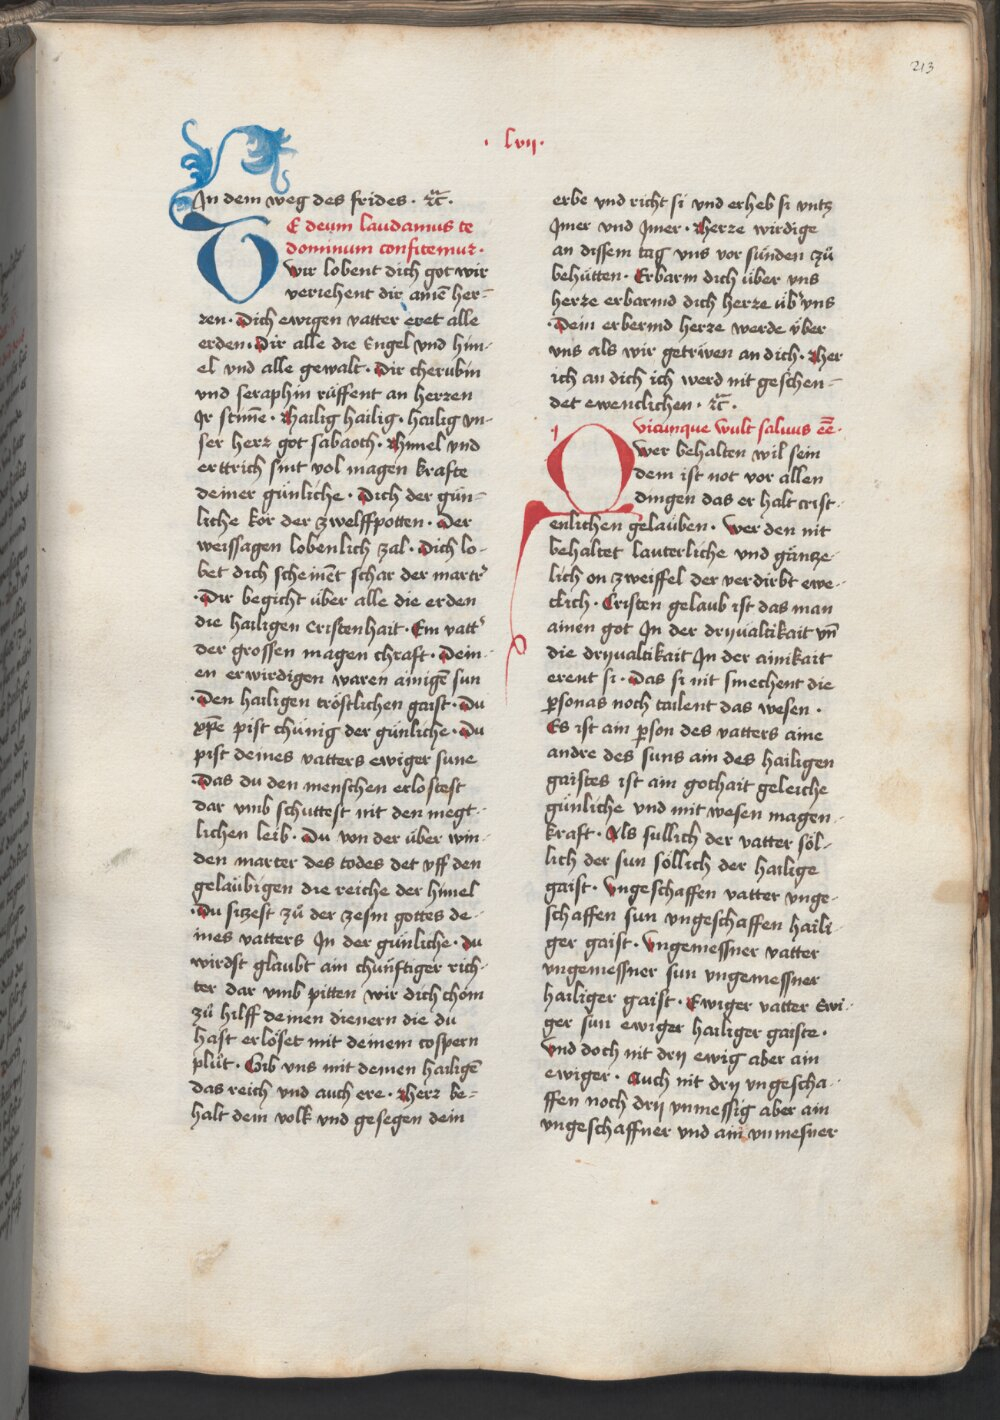 213
· lvij ·
In dem weg des frides · ꝛc̃ ·
TE deum laudamus te
dominum confitemur ·
Wir lobent dich got wir
veriehent dir ainē her=
ren · Dich ewigen vatter eret alle
erden · Dir alle die Engel vnd him-
el vnd alle gewalt · Dir cherubin
vnd seraphin rüffent an herzen
Ir stim̄e · Hailig hailig · hailig vn-
ser herr got sabaoth · Himel vnd
erttrich sint vol magen krafte
deiner günliche · Dich der gün=
liche kör der zwelffpotten · Der
weissagen lobenlich zal · Dich lo-
bet dich scheinēt schar der martr᾽
· Dir begicht über alle die erden
die hailigen cristenhait · Ein vatt᾽
der grossen magen chraft · Dein-
en erwirdigen waren ainigē sun
· Den hailigen tröstlichen gaist · Du
xp̄e pist chünig der günliche · Du
pist deines vatters ewiger sune
· Das du den menschen erlostest
dar vmb schuttest nit den megt-
lichen leib · Du von der über win-
den marter des todes det vff den
geläubigen die reiche der himel
· Du sitzest zů der zesm gottes de-
ines vatters In der günliche · du
wirdst glaubt ain chünftiger rich-
ter dar vmb pitten wir dich chom
zů hilff deinen dienern die du
hast erlöset mit deinem cospern
plůt · Gib vns mit deinen hailigē
das reich vnd auch ere · Herr be=
halt dein volk vnd gesegen dein
erbe vnd richt si vnd erheb si vntz
Imer vnd Imer · Herre wirdige
an dissem tag vns vor sünden zů
behütten · Erbarm dich über vns
herre erbarmd dich herre üb᾽ vns
· Dein erbermd herre werde über
vns als wir getriwen an dich · Her
ich an dich ich werd nit geschen=
det ewenclichen · ꝛc̃ ·
Quicunque wult saluus eē̄ ·
Wer behalten wil sein
dem ist not vor allen
dingen das er halt crist-
enlichen gelauben · Wer den nit
behaltet lauterliche vnd gäntze-
lich on zweiffel der verdirbt ewe-
clich · Cristen gelaub ist das man
ainen got In der drijualtikait vn̄
die drijualtikait In der ainikait
erent si · Das si nit smechent die
ꝑsonas noch tailent das wesen ·
Es ist ain ꝑson des vatters aine
andre des suns ain des hailigen
gaistes ist ain gothait geleiche
günliche vnd mit wesen magen-
kraft · Als sullich der vatter söl-
lich der sun söllich der hailige
gaist · Vngeschaffen vatter vnge-
schaffen sun vngeschaffen haili-
ger gaist · Vngemessner vatter
vngemessner sun vngemessner
hailiger gaist · Ewiger vatter Ewi-
ger sun ewiger hailiger gaiste ·
Vnd doch nit drij ewig aber ain
ewiger · Auch nit drij vngescha-
ffen noch drij vnmessig aber ain
vngeschaffner vnd ain vnmesner